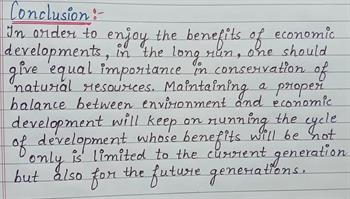 Conclusion :-
In order to enjoy the benefits of economic
developments, in the long run, one should
give equal importance in conservation of
natural resources. Maintaining a proper
balance between environment and economic
development will keep on running the cycle
of development whose benefits will be not
only is limited to the current generation
but also for the future generations.